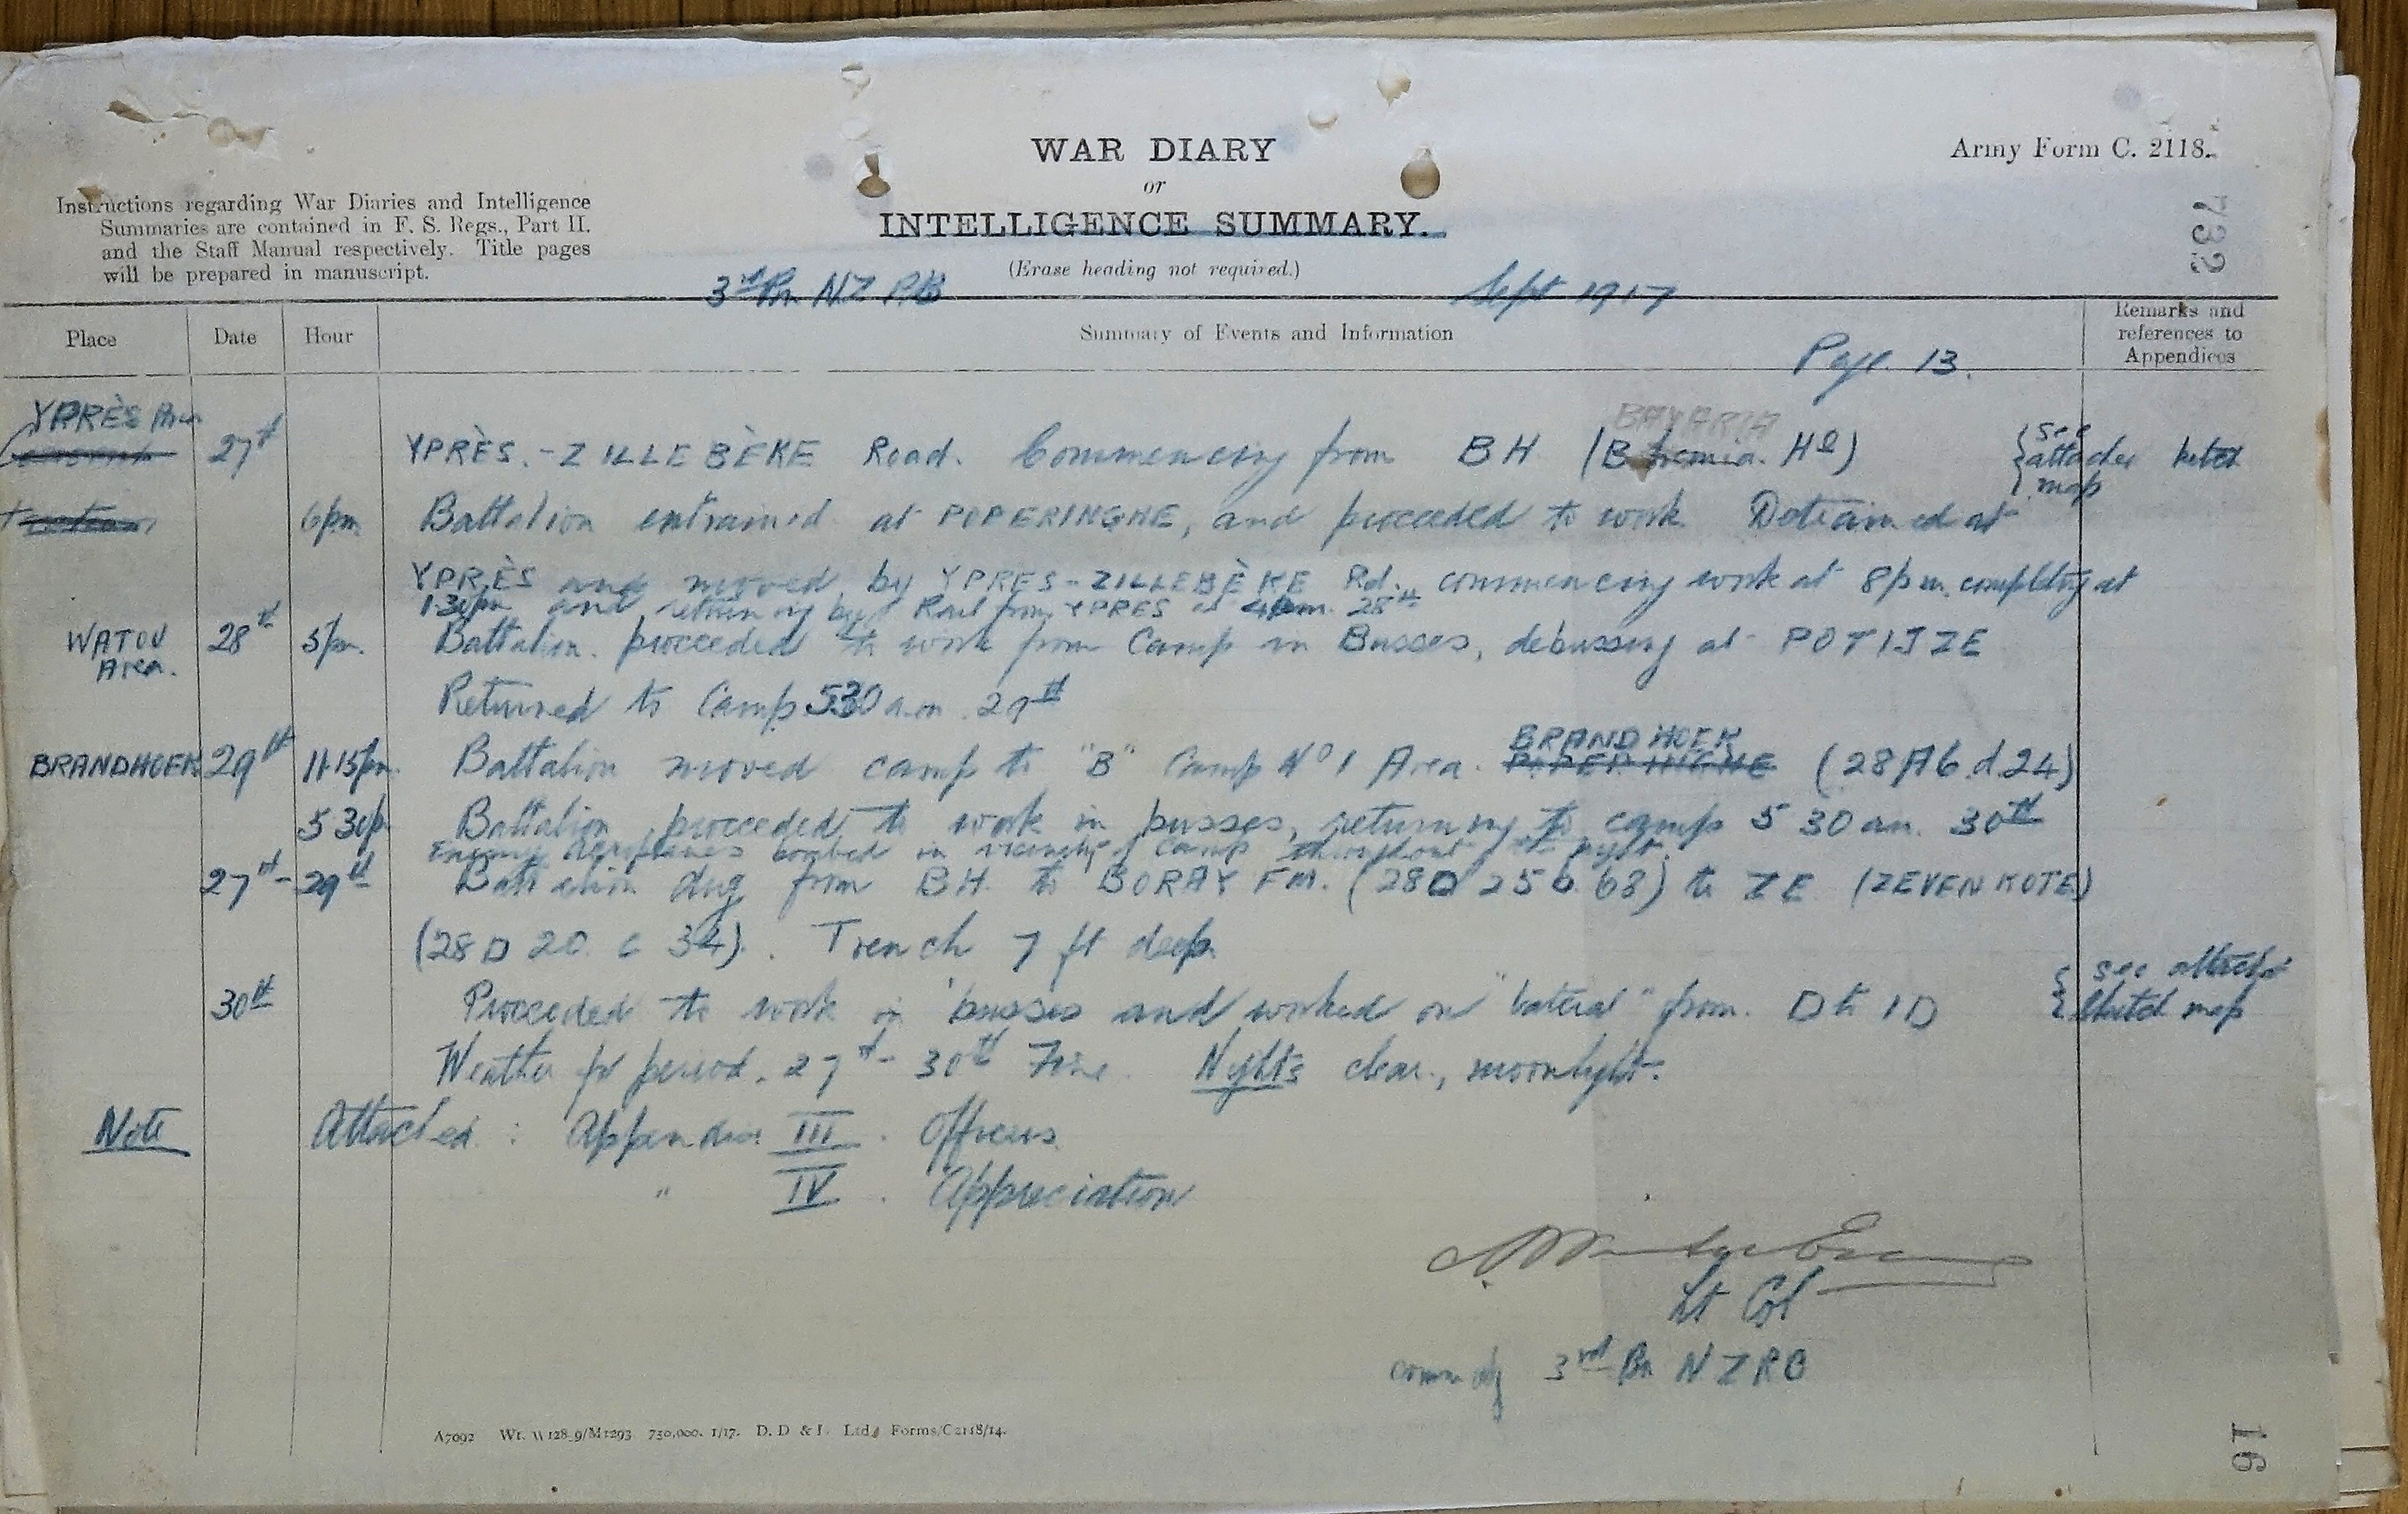 WAR DIARY
or
INTELLIGENCE SUMMARY.
(Erase heading not required.)
Army Form C. 2118.
732
Instructions regarding War Diaries and Intelligence
Summaries are contained in F. S. Regs., Part II.
and the Staff Manual respectively. Title pages
will be prepared in manuscript.
3rd Bn NZ RB
Sept 1917
Place Date Hour Summary of Events and Information Remarks and
references to
Appendices
Page 13.
YPRÈS Area
BAVARIA
27th YPRÈS.-ZILLEBÈKE Road. Commencing from BH (Bohemia Ho) {see
attached sketch
map
6pm Battalion entrained at POPERINGHE, and proceeded to work Detrained at
YPRÈS and moved by YPRES-ZILLEBÈKE Rd. commencing work at 8pm. completing at
and returning by Rail from YPRES at 28th
WATOU Area. 28th 5pm. Battalion proceeded to work from Camp in Busses, debussing at POTIJZE
Returned to Camp 530 am 29th
BRANDHOEK
BRANDHOEK 29th Battalion moved camp to "B" Camp No 1 Area. POPERINGHE (28 A 6.d.24)
5 30p Battalion proceeded to work in busses, returning to camp 5 30 am. 30th
Enemy Aeroplanes bombed in vicinity of camp throughout the night.
27th-29th Battalion dug from BH. to BORRY FM. (28D 25 b 68) to ZE (ZEVENKOTE)
(28 D 20. c 34). Trench 7 ft deep.
30th Proceeded to work in busses and worked on "lateral" from. D to 1D {see attached
sketch map
Weather for period. 27th - 30th Fine. Nights clear, moonlight.
Note Attached : Appendix III . Officers
" IV . Appreciation
Lt Col
commdg 3rd Bn NZRB
A7092 Wt. W128_9/M1293 750,000. 1/17. D. D & L. Ltd. Forms/C2118/14.
16